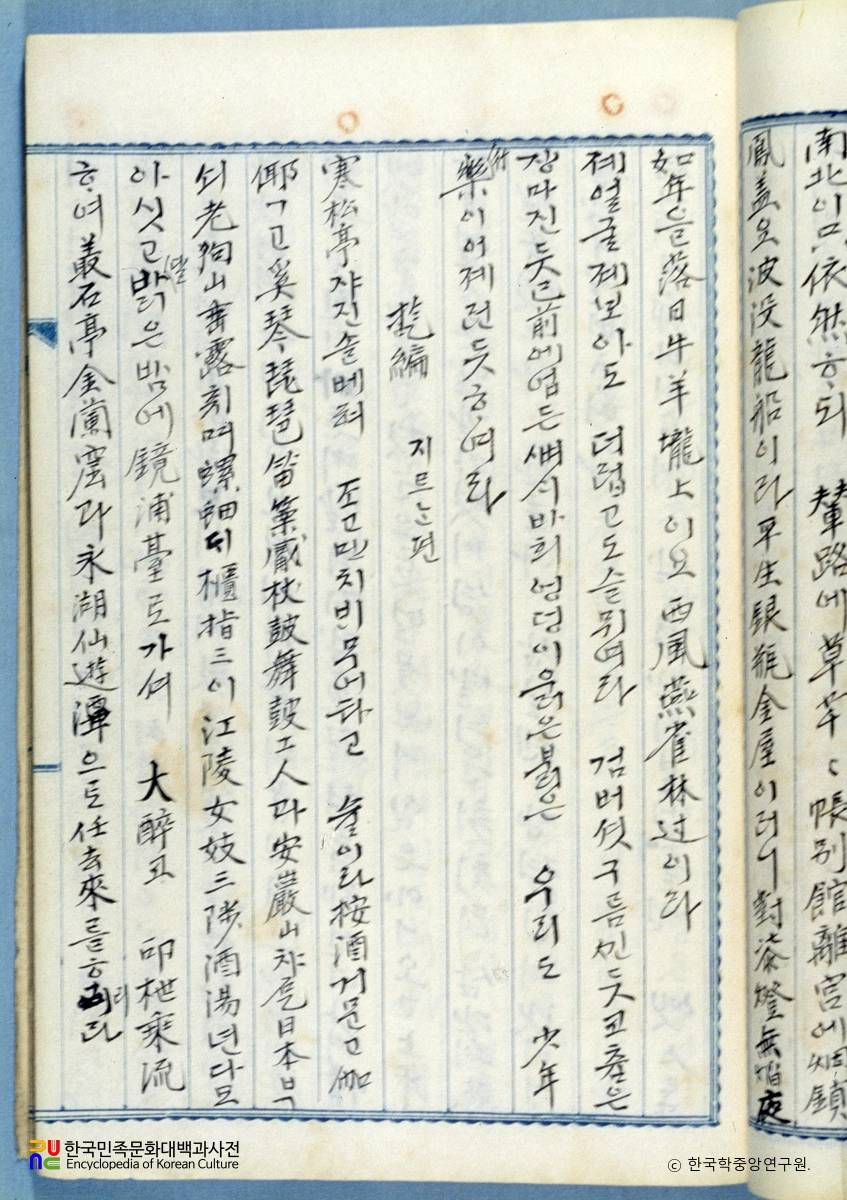 南北이며 依然한되 輦路에 草芊〻 帳別館離宮에 烟鎖
鳳盖요 波沒龍船이라 平生銀瓶金屋이러니 對漆燈無焰夜
如年을 落日牛羊壠上이요 西風燕雀林过이라
제얼굴 제보아도 더럽고도 슬뮈여라 검버섯 구름 씬듯 코춤은
장마진듯 已前에 업든 뼈시바회 엉덩이 울근불근 우리도 少年
行樂이 어제런듯 ᄒᆞ여라
旕編 지르는편
寒松亭 자진 솔 베혀 조고만치 비 무어 타고 술이라 按酒 거문고 伽
倻ㄱ고 奚琴 琵琶 笛 篥 杖鼓 舞鼓 工人과 安巖山 차돌 日本부
쇠 老狗山 垂露취며 螺鈿뒤 櫃指三이 江陵女妓 三陟酒湯년 다모
아 싯고 밝은 달 밤에 鏡浦臺로 가셔 大醉코 叩枻乘流
ᄒᆞ여 叢石亭 金蘭窟과 永湖 仙遊潭으로 任去來를 ᄒᆞ리라
한국민족문화대백과사전
Encyclopedia of Korean Culture
ⓒ 한국학중앙연구원.